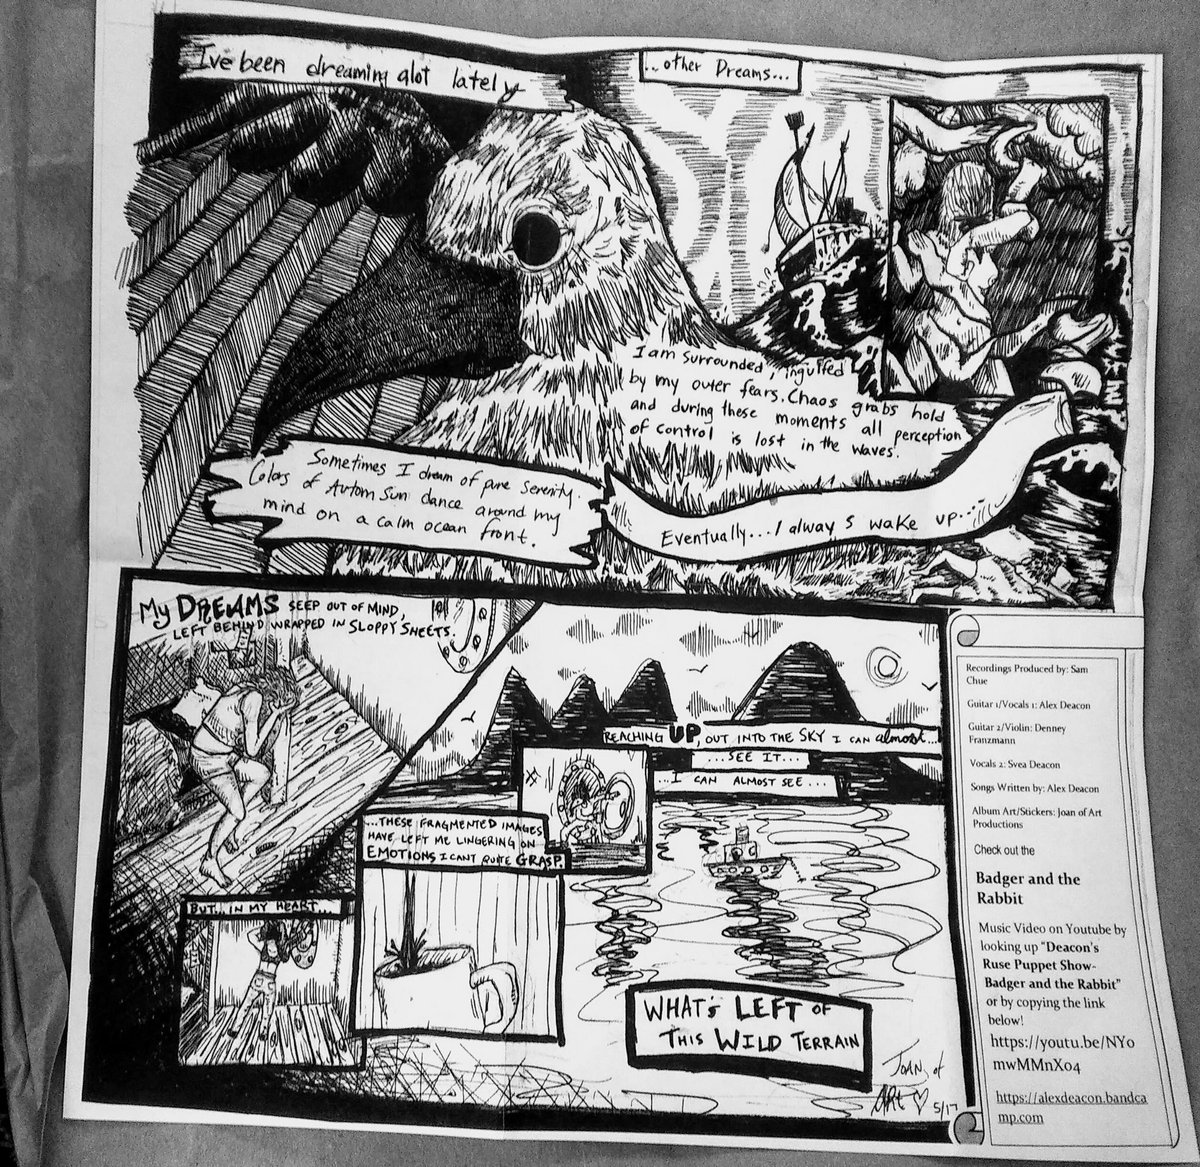 I've been dreaming alot lately
...other Dreams...
I am surrounded, ingulfed
by my outer fears. Chaos grabs hold
and during these moments all perception
of control is lost in the waves.
Sometimes I dream of pure serenity.
Colors of Autom Sun dance around my
mind on a calm ocean front.
Eventually...I always wake up...
My DREAMS SEEP OUT OF MIND,
LEFT BEHIND WRAPPED IN SLOPPY SHEETS.
REACHING UP, OUT INTO THE SKY I CAN almost...
...SEE IT...
...I CAN ALMOST SEE...
...THESE FRAGMENTED IMAGES
HAVE LEFT ME LINGERING ON
EMOTIONS I CANT QUITE GRASP.
BUT...IN MY HEART...
WHAT'S LEFT OF
THIS WILD TERRAIN
JOAN of
ART 5/17
Recordings Produced by: Sam
Chue
Guitar 1/Vocals 1: Alex Deacon
Guitar 2/Violin: Denney
Franzmann
Vocals 2: Svea Deacon
Songs Written by: Alex Deacon
Album Art/Stickers: Joan of Art
Productions
Check out the
Badger and the
Rabbit
Music Video on Youtube by
looking up "Deacon's
Ruse Puppet Show-
Badger and the Rabbit"
or by copying the link
below!
https://youtu.be/NYo
mwMMnXo4
https://alexdeacon.bandca
mp.com